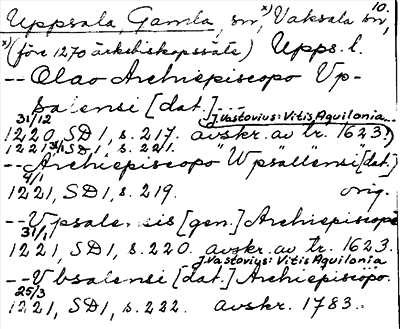 Uppsala, Gamla, sn, x) Vaksala sn, 10.
x) (före 1270 ärkebiskopssäte) Upps. l.
-- Olao Archiepiscopo Vp-
salensi [dat.] ...
31/12 J. Vastovius: Vitis Aquilonia...
1220, SD1, s. 217. avskr. av tr. 1623.)
1221 SD1, s. 221.
-- Archiepiscopo "Wpsallensi [dat.]
1221, SD1, s. 219. orig.
-- Vpsalensis [gen.] Archiepiscopi
31/1
1221, SD1, s. 220. avskr. av tr. 1623.
J. Vastovius: Vitis Aquilonia
-- Vbsalensi [dat.] Archiepiscopo.
25/3
1221, SD1, s. 222. avskr. 1783.